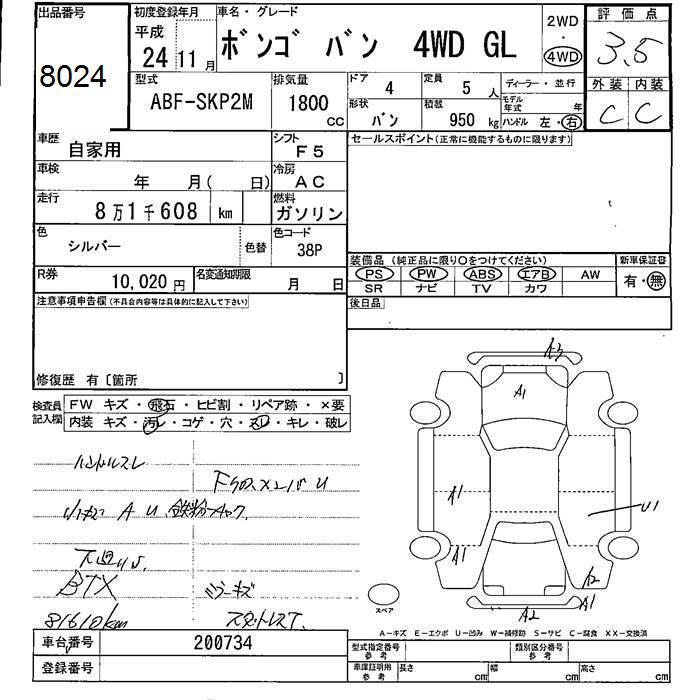 出品番号
8024
初度登録年月
平成
24 11月
車名・グレード
ボンゴ バン 4WD GL
2WD
・
4WD
評価点
3.5
外装 内装
C C
型式
ABF-SKP2M
排気量
1800
CC
ドア
4
定員
5 人
ディーラー・並行
形状
バン
積載
950 kg
モデル年式 年
ハンドル 左・右
車歴
自家用
シフト
F5
セールスポイント(正常に機能するものに限ります)
車検
年 月( 日)
冷房
AC
走行
8万1千608 km
燃料
ガソリン
色
シルバー
色替
色コード
38P
装備品(純正品に限り○をつけてください)
新車保証書
PS PW ABS エアB AW
SR ナビ TV カワ
有・無
R券
10,020円
名変通知期限
月 日
後日品
注意事項申告欄(不具合内容等は具体的に記入して下さい)
修復歴 有〔箇所 〕
検査員記入欄
FW キズ・飛石・ヒビ割・リペア跡・×要
内装 キズ・汚レ・コゲ・穴・スレ・キレ・破レ
ハンドルスレ
FクロスメンバU
小キズ A U
下廻りS
BTX
81610km
A3
A1
A1
U1
A1
A2
A1
A2
スペア
A-キズ E-エクボ U-凹み W-補修跡 S-サビ C-腐食 XX-交換済
車台番号
200734
登録番号
型式指定番号 参考
類別区分番号 参考
車庫証明用 参考
長さ cm
幅 cm
高さ cm